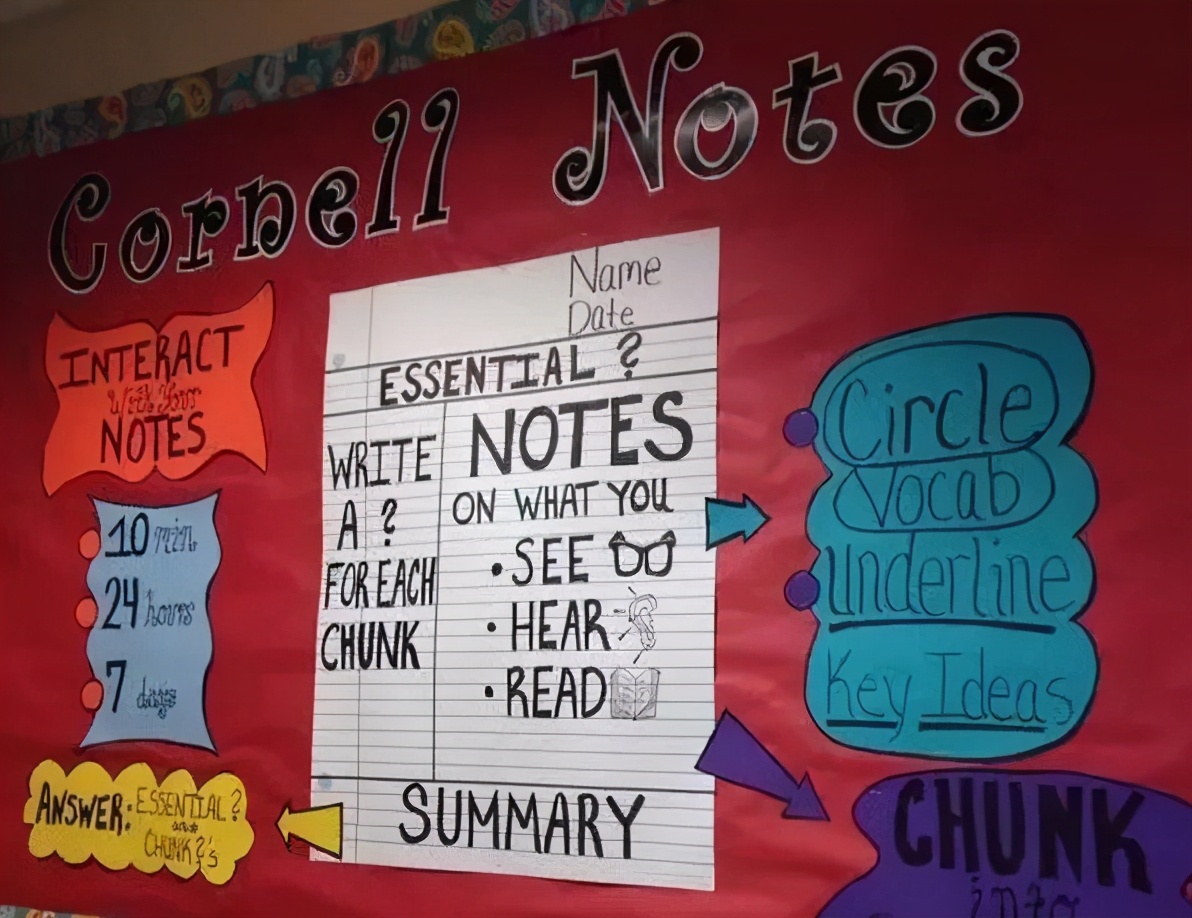 Cornell Notes
INTERACT
With Your
NOTES
10 min.
24 hours
7 days
ANSWER: ESSENTIAL?
and
CHUNK ?'s
Name
Date
ESSENTIAL ?
WRITE
A ?
FOR EACH
CHUNK
NOTES
ON WHAT YOU
• SEE
• HEAR
• READ
SUMMARY
Circle
Vocab
Underline
Key Ideas
CHUNK
into